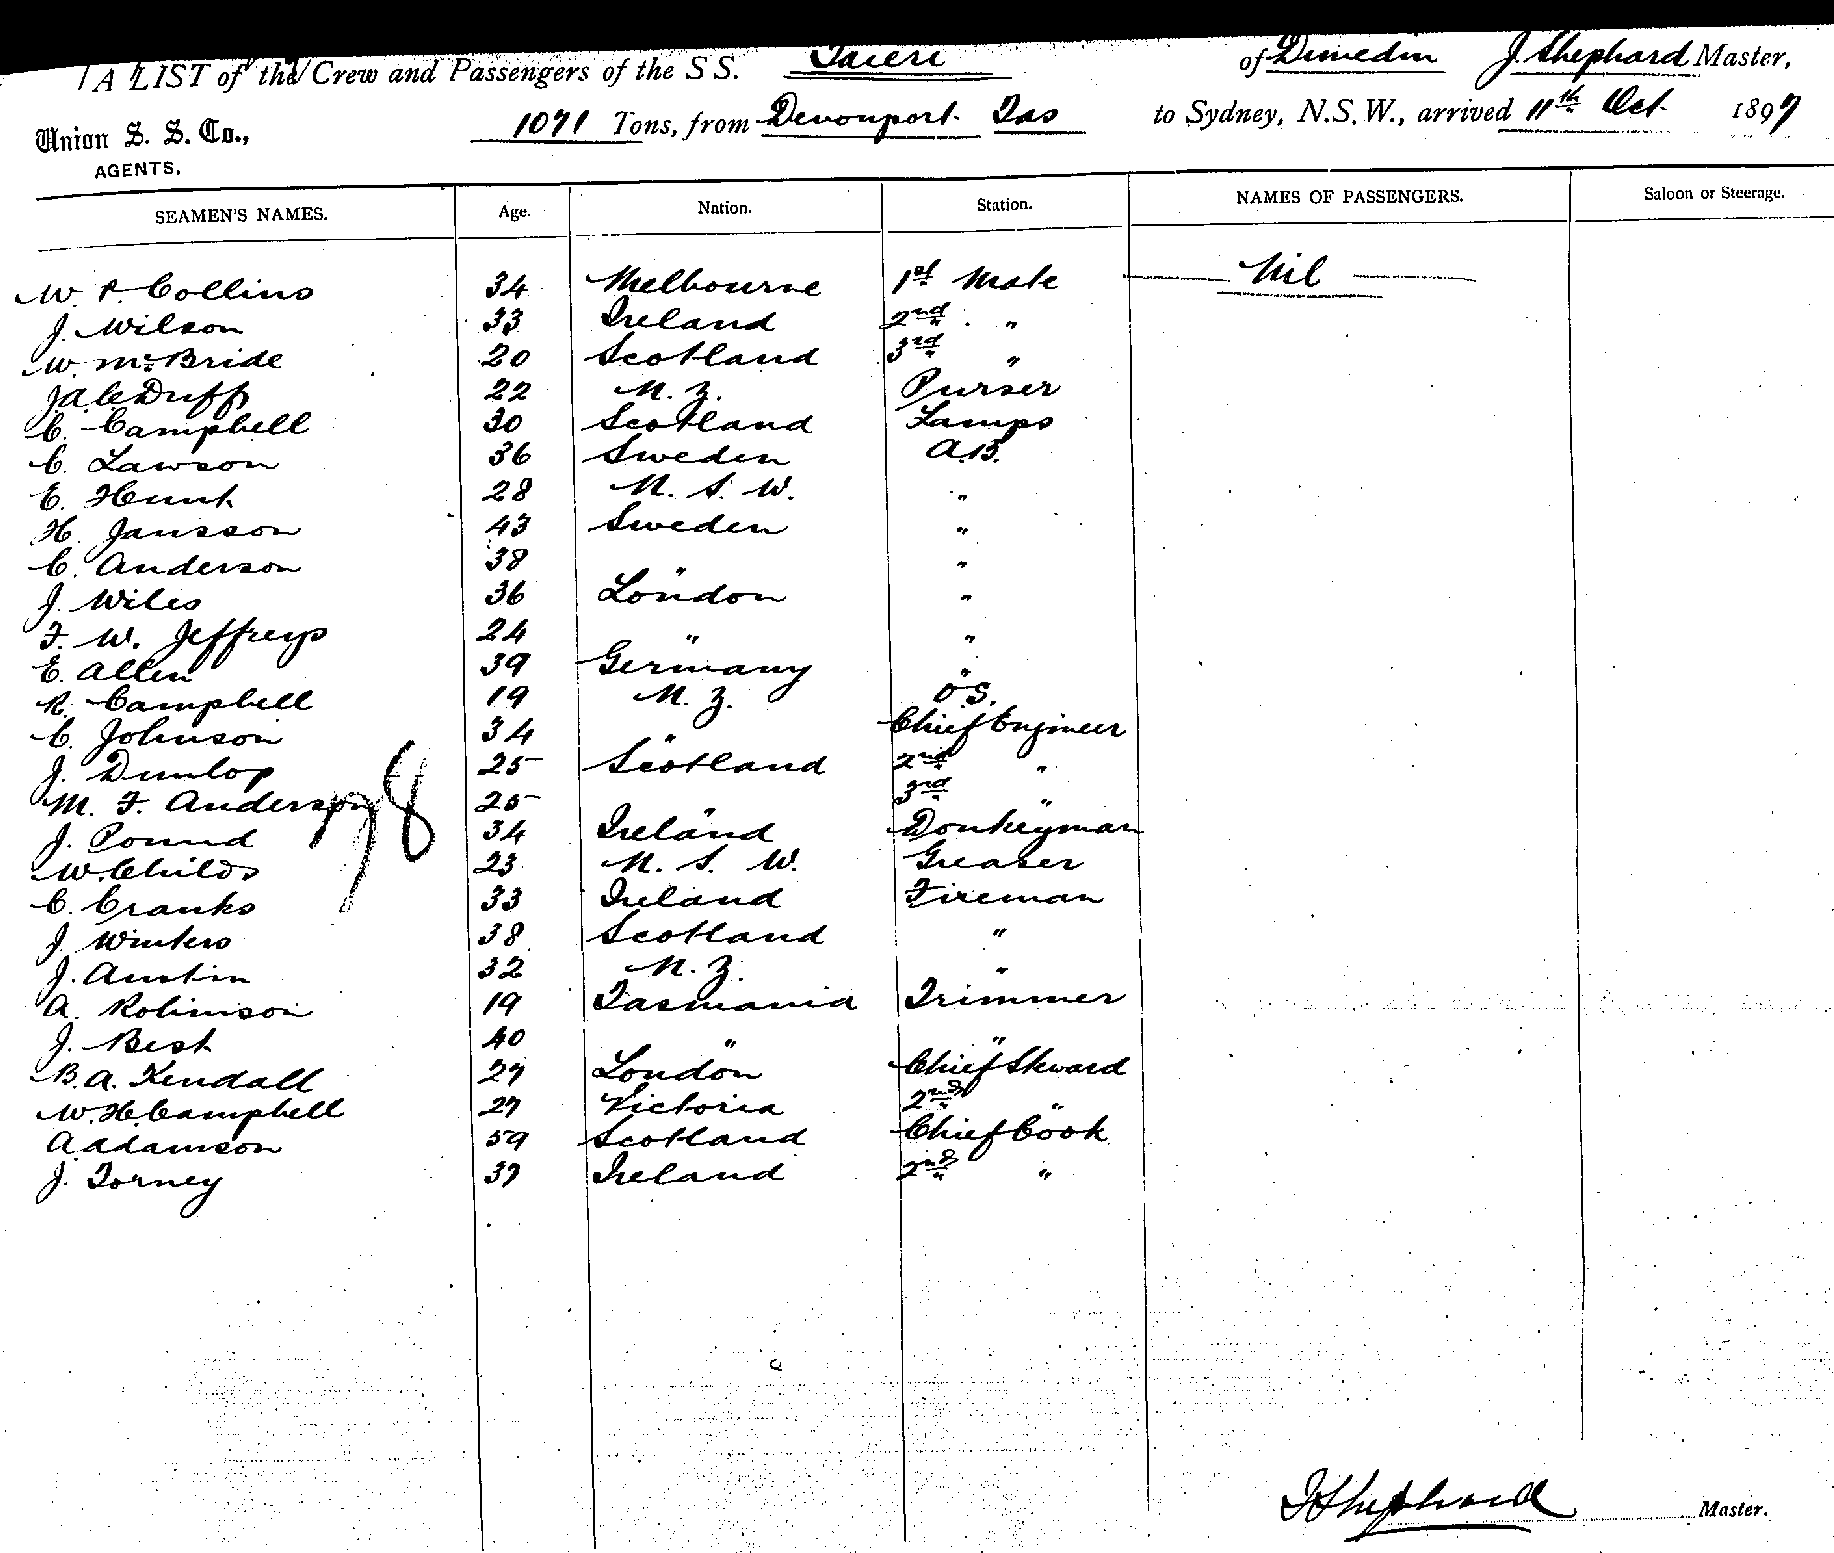 A LIST of the Crew and Passengers of the S S. Taieri of Dunedin J. Shephard Master,
Union S. S. Co., 1071 Tons, from Devonport Tas to Sydney, N.S.W., arrived 11th Oct 1897
AGENTS.
SEAMEN'S NAMES. Age. Nation. Station. NAMES OF PASSENGERS. Saloon or Steerage.
W. P. Collins 34 Melbourne 1st Mate Nil
J. Wilson 33 Ireland 2nd "
W. McBride 20 Scotland 3rd "
Duff 22 N. Z. Purser
C. Campbell 30 Scotland Lamps
C. Lawson 36 Sweden A.B.
E. Hunt 28 N. S. W. "
H. Jansson 43 Sweden "
C. Anderson 38 " "
J. Wiles 36 London "
F. W. Jeffreys 24 " "
E. Allen 39 Germany "
R. Campbell 19 N. Z. O.S.
C. Johnson 34 " Chief Engineer
J. Dunlop 25 Scotland 2nd "
M. F. Anderson 25 " 3rd "
J. Pound 34 Ireland Donkeyman
W. Childs 23 N. S. W. Greaser
C. Cranks 33 Ireland Fireman
J. Winters 38 Scotland "
J. Austin 32 N. Z. "
A. Robinson 19 Tasmania Trimmer
J. Best 40 " "
B. A. Kendall 27 London Chief Steward
W. H. Campbell 27 Victoria 2nd "
A Adamson 59 Scotland Chief Cook
J. Torney 37 Ireland 2nd "
98
J Shephard Master.